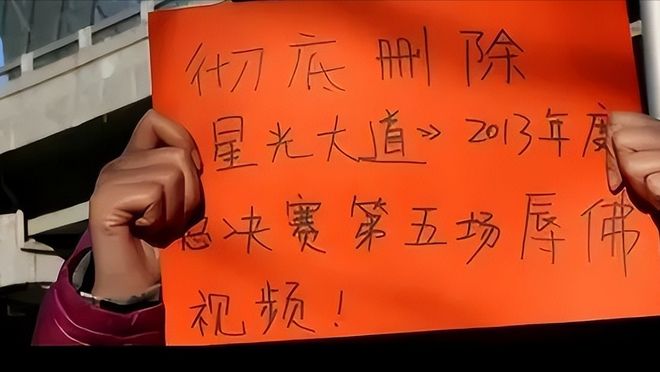 彻底删除
《星光大道》2013年度
总决赛第五场辱佛
视频！